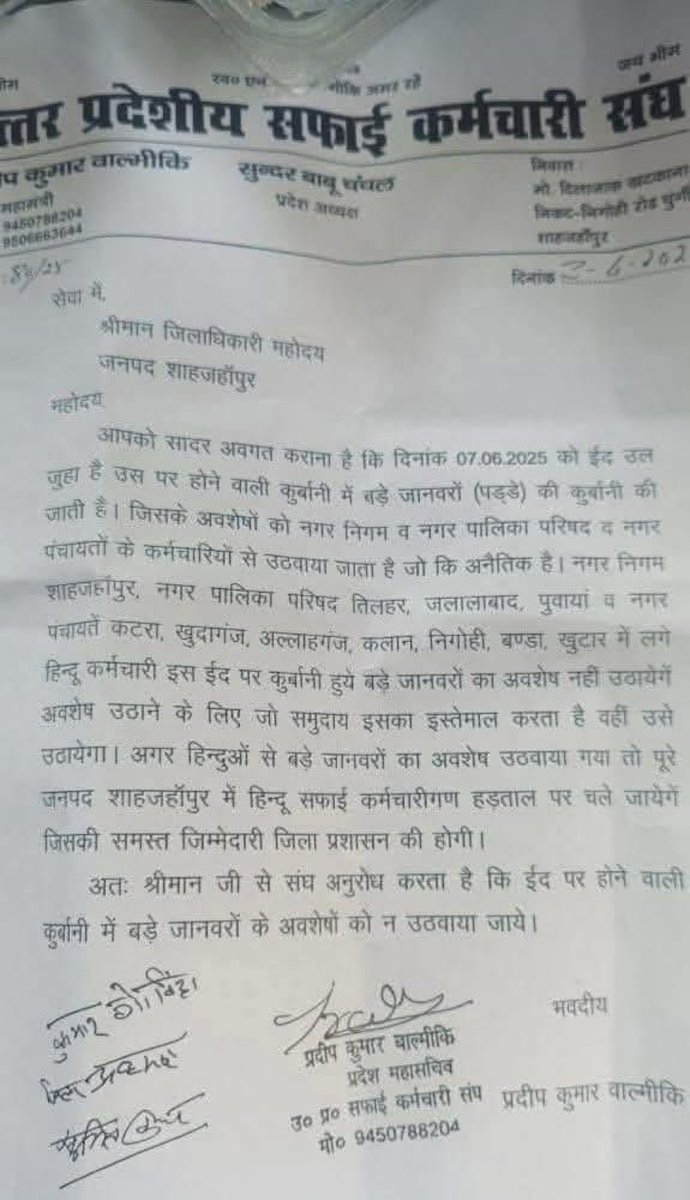 जय भीम
स्व० एन अमर रहे
त्तर प्रदेशीय सफाई कर्मचारी संघ
प कुमार वाल्मीकि
महामंत्री
9450788204
9506663644
सुन्दर बाबू चंचल
प्रदेश अध्यक्ष
निवास :
मो. दिलाजाक
निकट-निगोही रोड
शाहजहाँपुर
दिनांक
सेवा में,
श्रीमान जिलाधिकारी महोदय
जनपद शाहजहाँपुर
महोदय
आपको सादर अवगत कराना है कि दिनांक 07.06.2025 को ईद उल
जुहा है उस पर होने वाली कुर्बानी में बड़े जानवरों (पड्डे) की कुर्बानी की
जाती है। जिसके अवशेषों को नगर निगम व नगर पालिका परिषद द नगर
पंचायतों के कर्मचारियों से उठवाया जाता है जो कि अनैतिक है। नगर निगम
शाहजहाँपुर, नगर पालिका परिषद तिलहर, जलालाबाद, पुवायां व नगर
पंचायतें कटरा, खुदागंज, अल्लाहगंज, कलान, निगोही, बण्डा, खुटार में लगे
हिन्दू कर्मचारी इस ईद पर कुर्बानी हुये बड़े जानवरों का अवशेष नहीं उठायेगें
अवशेष उठाने के लिए जो समुदाय इसका इस्तेमाल करता है वहीं उसे
उठायेगा। अगर हिन्दुओं से बड़े जानवरों का अवशेष उठवाया गया तो पूरे
जनपद शाहजहाँपुर में हिन्दू सफाई कर्मचारीगण हड़ताल पर चले जायेगें
जिसकी समस्त जिम्मेदारी जिला प्रशासन की होगी।
अतः श्रीमान जी से संघ अनुरोध करता है कि ईद पर होने वाली
कुर्बानी में बड़े जानवरों के अवशेषों को न उठवाया जाये।
कुमार
भवदीय
प्रदीप कुमार बाल्मीकि
प्रदेश महासचिव
उ० प्र० सफाई कर्मचारी संघ
मो० 9450788204
प्रदीप कुमार वाल्मीकि